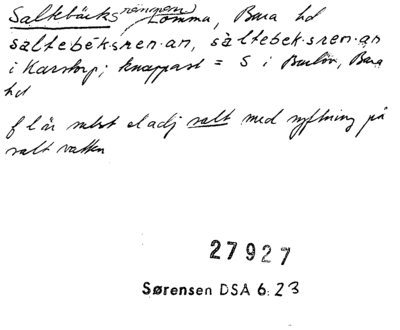 Saltebäcks rännen) Lomma, Bara hd
saltebɛ́k·sren·an, sàltebek·sren·an
i Karstorp; knappast = S i Burlöv, Bara
hd
f l är subst el adj salt med syftning på
salt vatten
27927
Sørensen DSA 6:23